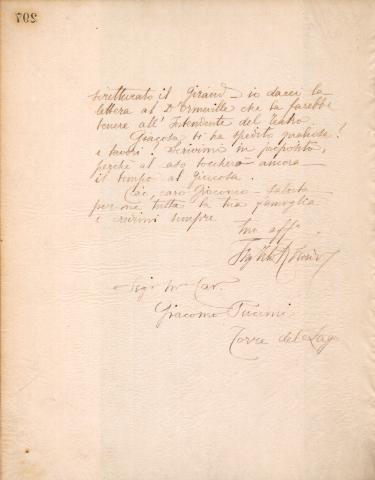 207
scritturato il Giraud – io darei la
lettera al D'Ormeville che la farebbe
tenere all'Intendente del Teatro.
Giacosa ti ha spedito qualcosa?
e lavori? Scrivimi in proposito,
perchè al caso toccherò ancora
il tempo al Giacosa.
Ciao, caro Giacomo – saluta
per me tutta la tua famiglia
e scrivimi sempre
tuo aff.
Giacomo Puccini
Torre del Lago